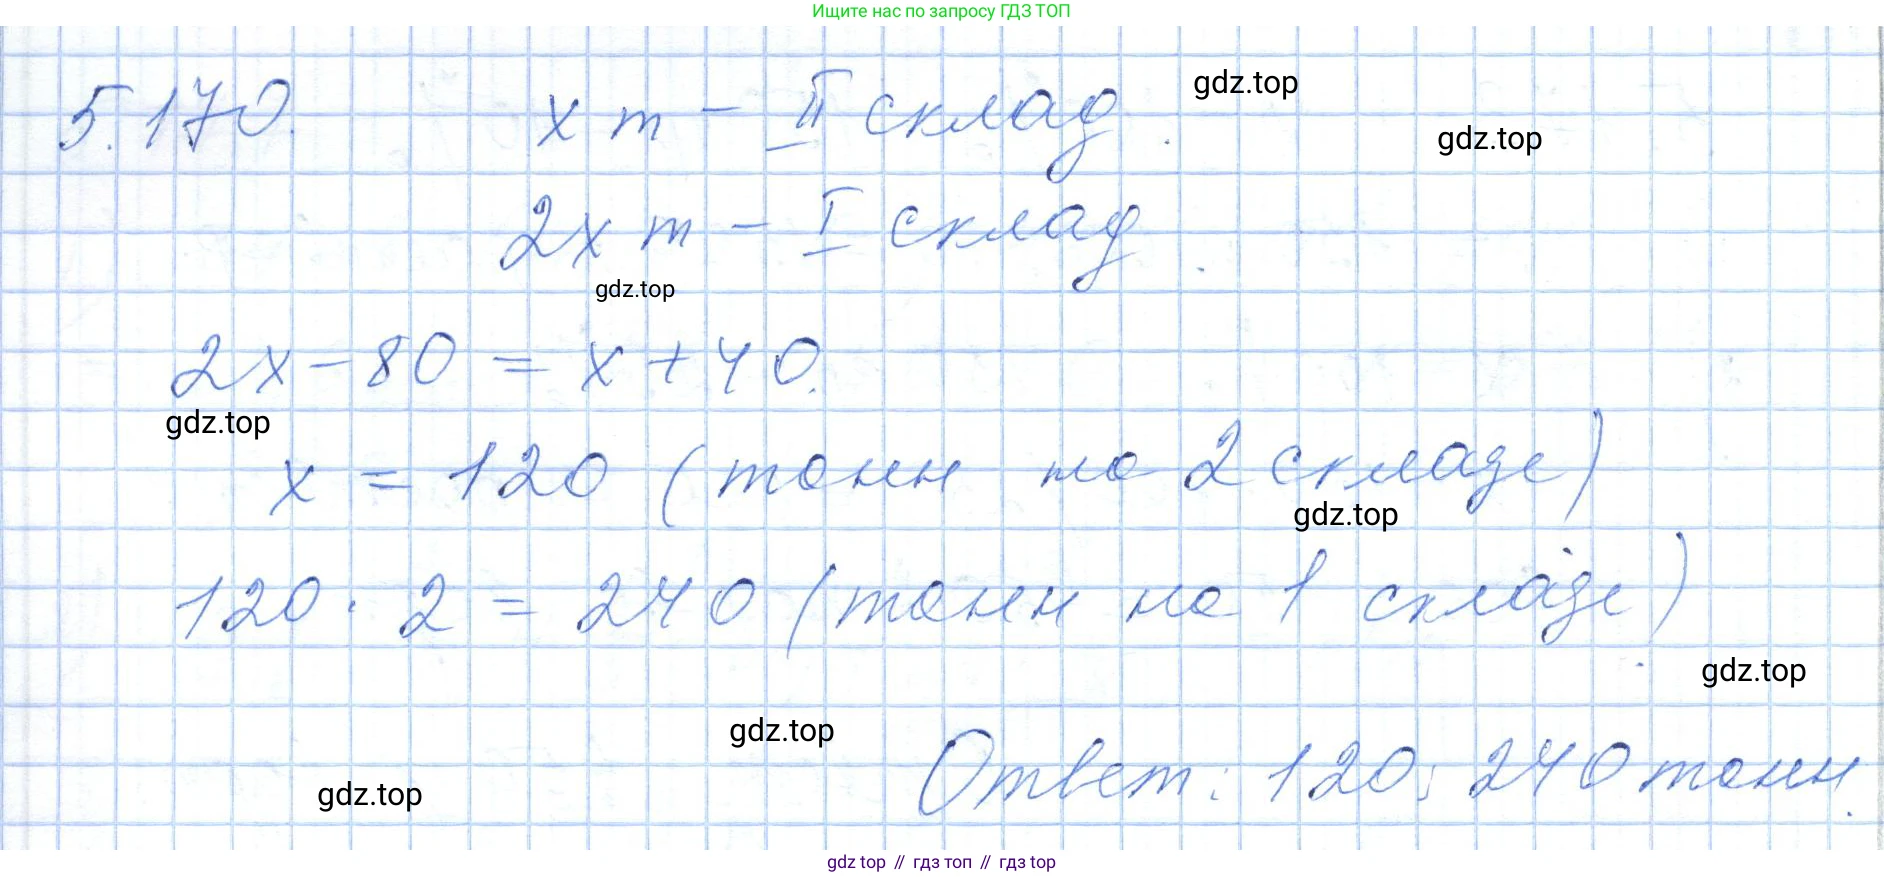 Ищите нас по запросу ГДЗ ТОП
5.170. x т - II склад.
gdz.top
gdz.top
2x т - I склад.
gdz.top
2x - 80 = x + 40.
gdz.top
x = 120 (тонн на 2 складе)
gdz.top
120 · 2 = 240 (тонн на 1 складе).
gdz.top
gdz.top
Ответ: 120; 240 тонн.
gdz.top
gdz top // гдз топ // гдз top